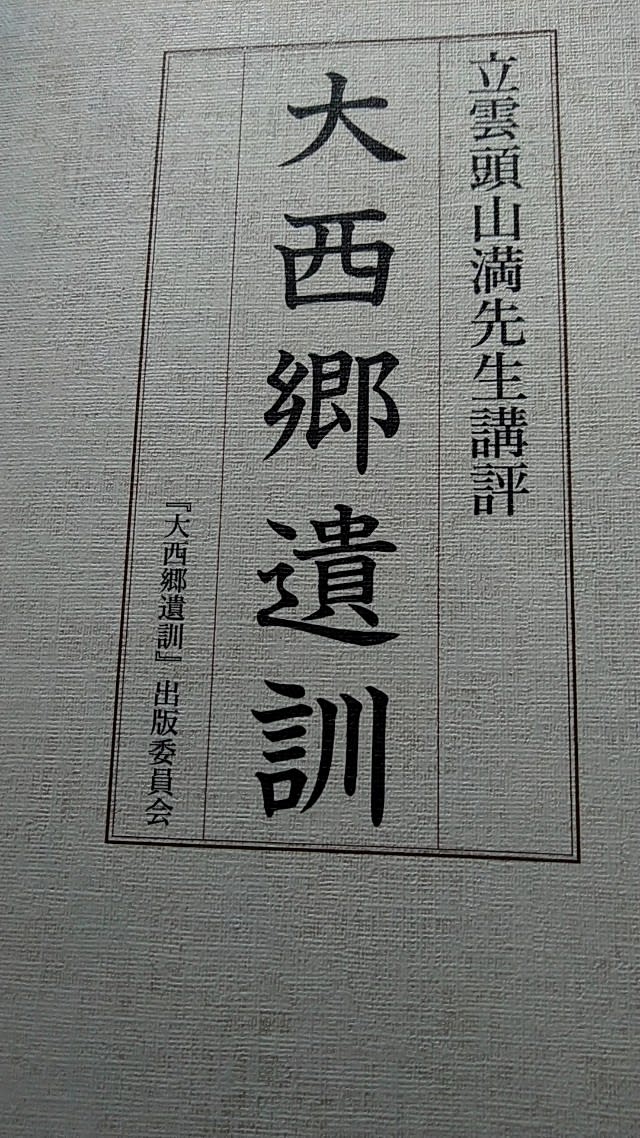 立雲頭山満先生講評
大西郷遺訓
『大西郷遺訓』出版委員会